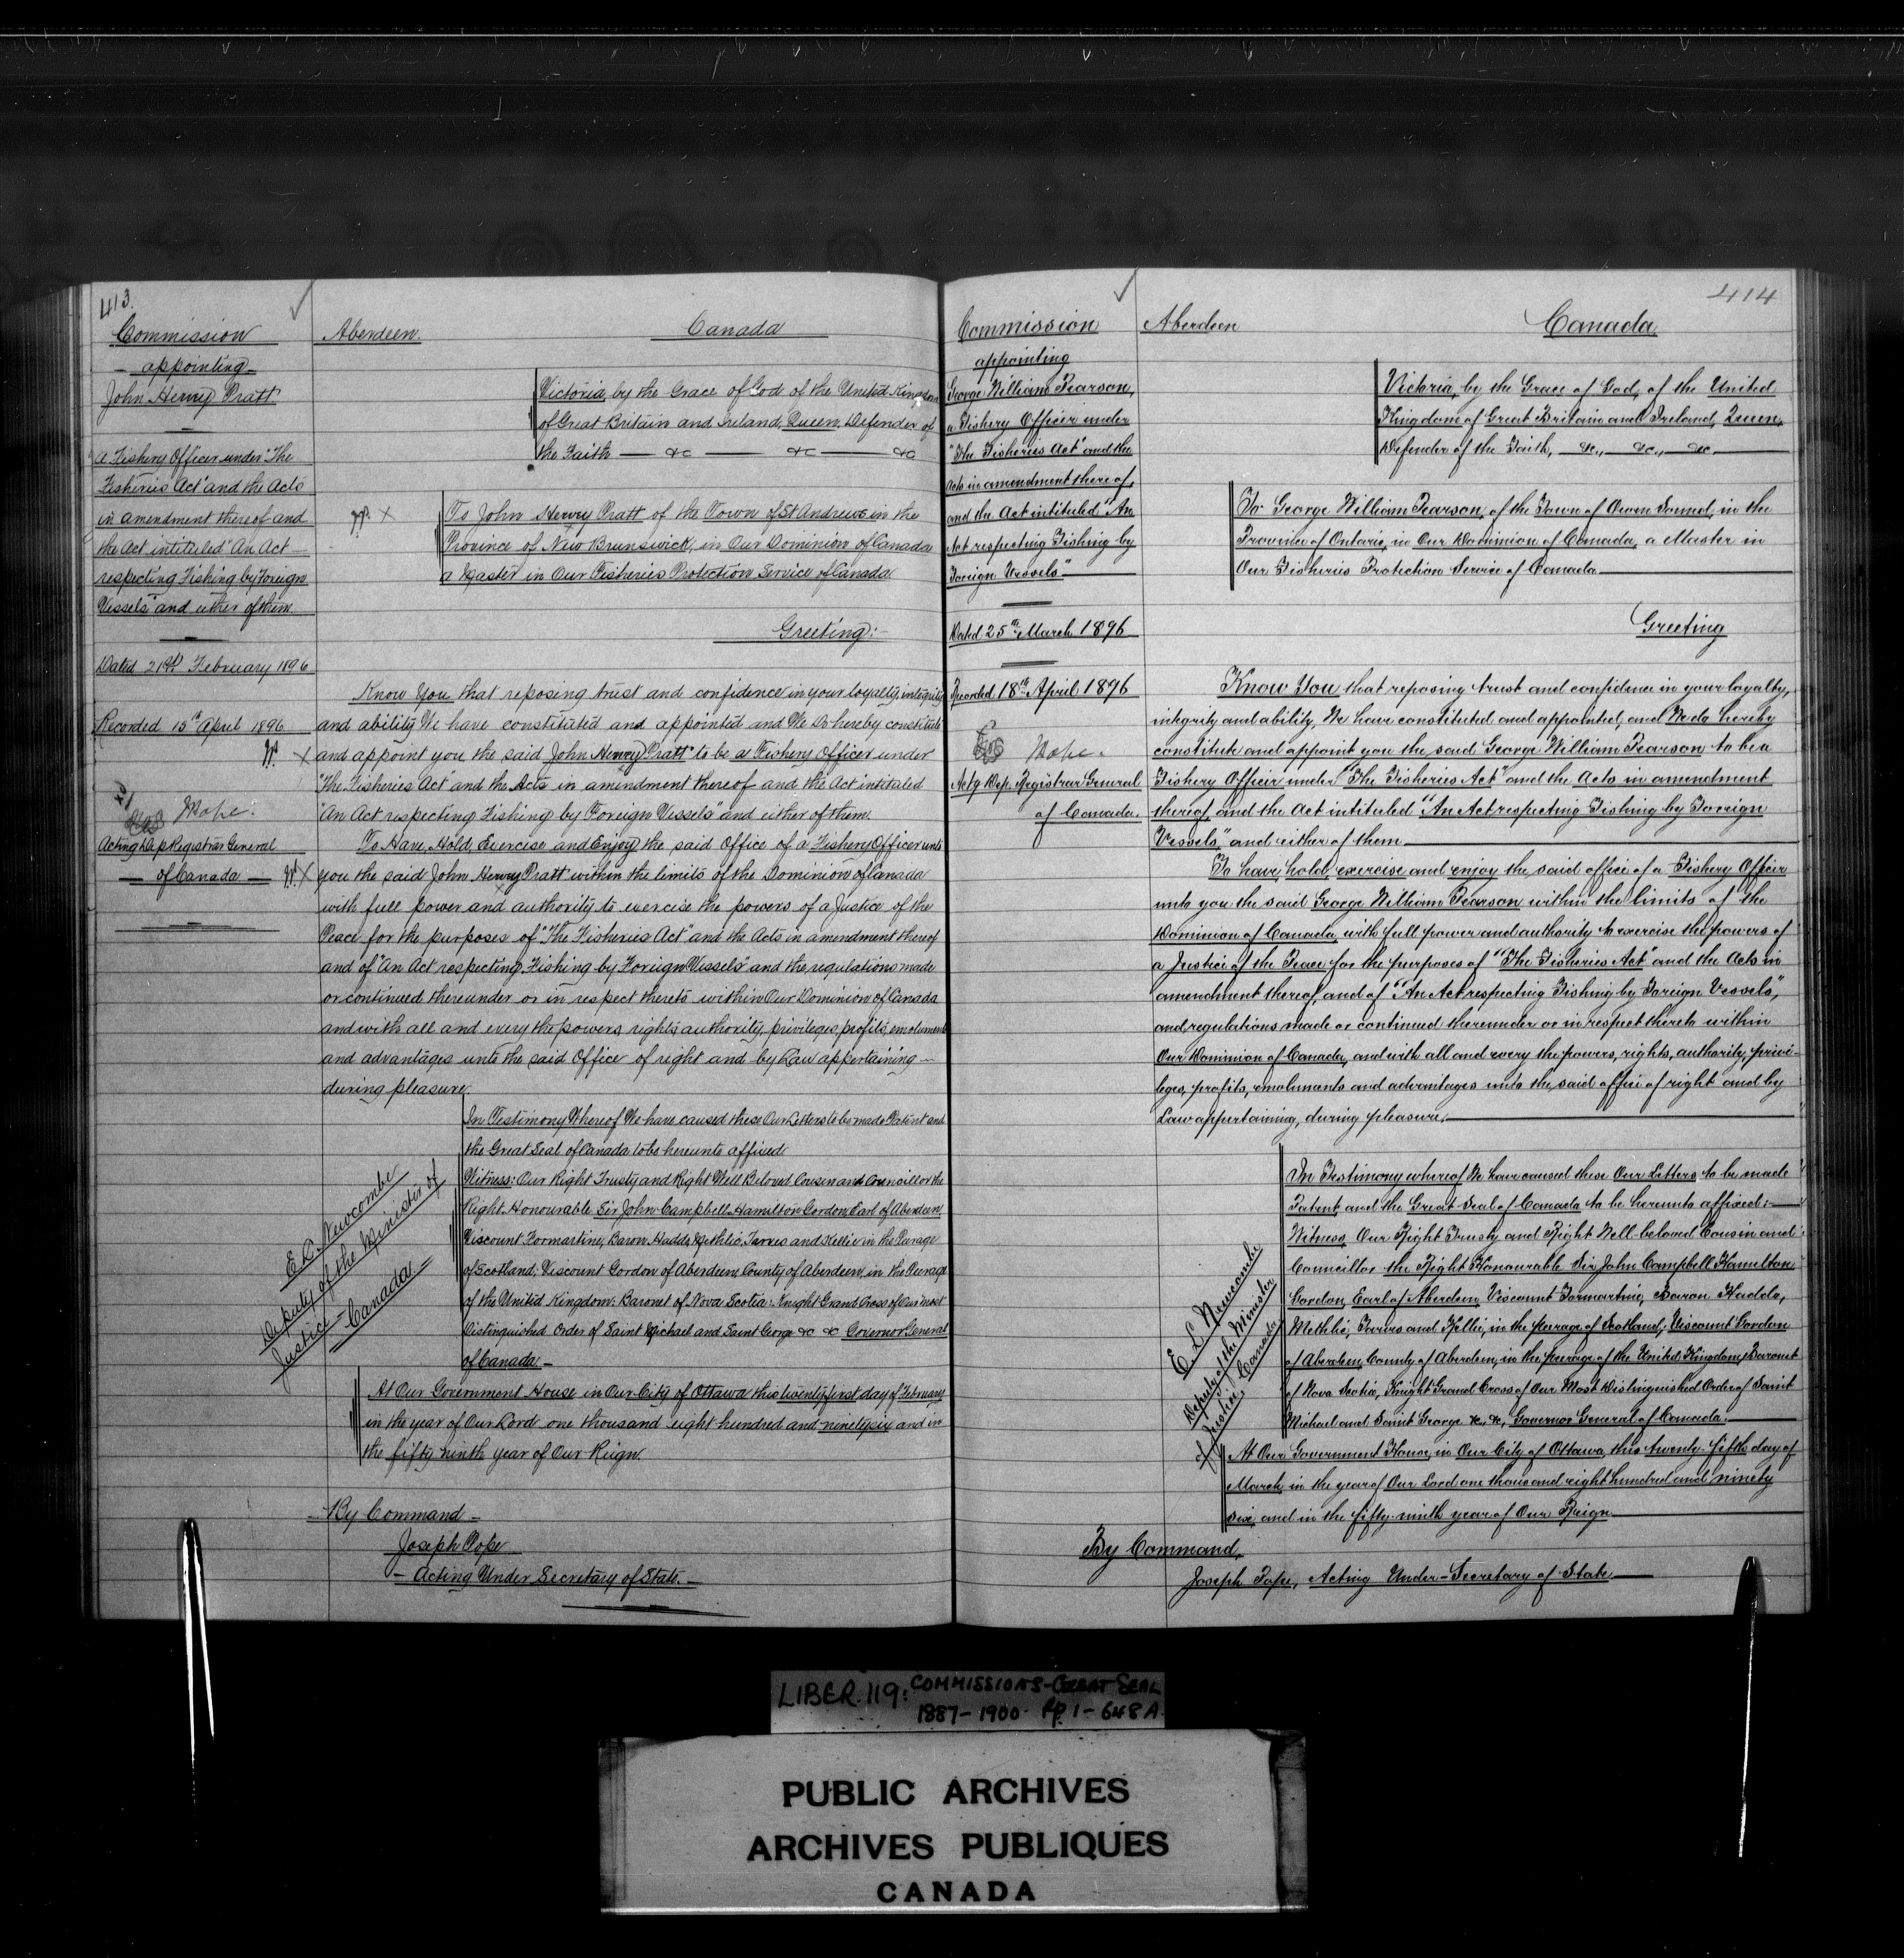 413.
Commission
- appointing -
John Henry Pratt
a Fishery Officer under "The
Fisheries Act" and the Acts
in amendment thereof and
the Act intituled "An Act
respecting Fishing by Foreign
Vessels" and either of them.
Dated 21st February 1896
Recorded 15th April 1896
Acting Dep Registrar General
of Canada
Aberdeen.
Canada
Victoria, by the Grace of God of the United Kingdom
of Great Britain and Ireland, Queen, Defender of
the Faith — &c — &c — &c
To John Henry Pratt of the Town of St Andrews in the
Province of New Brunswick, in Our Dominion of Canada
a Master in Our Fisheries Protection Service of Canada.
Greeting:-
Know You that reposing trust and confidence in your loyalty, integrity
and ability We have constituted and appointed and We Do hereby constitute
and appoint you the said John Henry Pratt to be a Fishery Officer under
"The Fisheries Act" and the Acts in amendment thereof and the Act intituled
"An Act respecting Fishing by Foreign Vessels" and either of them.
To Have, Hold, Exercise and Enjoy the said Office of a Fishery Officer unto
you the said John Henry Pratt within the limits of the Dominion of Canada
with full power and authority to exercise the powers of a Justice of the
Peace for the purposes of "The Fisheries Act" and the Acts in amendment thereof
and of "An Act respecting Fishing by Foreign Vessels" and the regulations made
or continued thereunder or in respect thereto within Our Dominion of Canada
and with all and every the powers, rights, authority, privileges, profits, emoluments
and advantages unto the said Office of right and by Law appertaining —
during pleasure.
In Testimony Whereof We have caused these Our Letters to be made Patent and
the Great Seal of Canada to be hereunto affixed.
Witness: Our Right Trusty and Right Well Beloved Cousin and Councillor the
Right Honourable Sir John Campbell Hamilton Gordon, Earl of Aberdeen,
Viscount Formartine, Baron Haddo, Methlic, Tarves and Kellie in the Peerage
of Scotland; Viscount Gordon of Aberdeen, County of Aberdeen, in the Peerage
of the United Kingdom: Baronet of Nova Scotia: Knight Grand Cross of Our most
Distinguished Order of Saint Michael and Saint George &c &c Governor General
of Canada —
E L Newcombe
Deputy of the Minister of
Justice = Canada
At Our Government House in Our City of Ottawa this twenty first day of February
in the year of Our Lord one thousand eight hundred and ninety six and in
the fifty ninth year of Our Reign.
- By Command -
Joseph Pope
- Acting Under Secretary of State. -
414
Commission
appointing
George William Pearson,
a Fishery Officer under
"The Fisheries Act" and the
Acts in amendment thereof,
and the Act intituled "An
Act respecting Fishing by
Foreign Vessels"
Dated 25th March 1896
Recorded 18th April 1896
Actg Dep. Registrar General
of Canada.
Aberdeen
Canada
Victoria, by the Grace of God, of the United
Kingdom of Great Britain and Ireland, Queen,
Defender of the Faith, — &c., — &c., — &c.
To George William Pearson, of the Town of Owen Sound, in the
Province of Ontario, in Our Dominion of Canada, a Master in
Our Fisheries Protection Service of Canada
Greeting
Know You that reposing trust and confidence in your loyalty,
integrity and ability, We have constituted and appointed, and We do hereby
constitute and appoint you the said George William Pearson to be a
Fishery Officer under "The Fisheries Act" and the Acts in amendment
thereof, and the Act intituled "An Act respecting Fishing by Foreign
Vessels," and either of them
To have, hold, exercise and enjoy the said office of a Fishery Officer
unto you the said George William Pearson within the limits of the
Dominion of Canada, with full power and authority to exercise the powers of
a Justice of the Peace for the purposes of "The Fisheries Act" and the Acts in
amendment thereof, and of "An Act respecting Fishing by Foreign Vessels",
and regulations made or continued thereunder or in respect thereto within
Our Dominion of Canada, and with all and every the powers, rights, authority, privi-
leges, profits, emoluments and advantages unto the said office of right and by
Law appertaining, during pleasure.
In Testimony whereof We have caused these Our Letters to be made
Patent, and the Great Seal of Canada to be hereunto affixed:—
Witness, Our Right Trusty and Right Well-beloved Cousin and
Councillor the Right Honourable Sir John Campbell Hamilton
Gordon, Earl of Aberdeen, Viscount Formartine, Baron Haddo,
Methlic, Tarves and Kellie, in the peerage of Scotland; Viscount Gordon
of Aberdeen, County of Aberdeen, in the peerage of the United Kingdom; Baronet
of Nova Scotia, Knight Grand Cross of Our Most Distinguished Order of Saint
Michael and Saint George &c., &c., Governor General of Canada.
E. L. Newcombe
Deputy of the Minister
of Justice, Canada
At Our Government House, in Our City of Ottawa, this twenty-fifth day of
March, in the year of Our Lord one thousand eight hundred and ninety
six, and in the fifty-ninth year of Our Reign
By Command,
Joseph Pope, Acting Under-Secretary of State
LIBER. 119: COMMISSIONS-GREAT SEAL
1887-1900. Pp 1-648A.
PUBLIC ARCHIVES
ARCHIVES PUBLIQUES
CANADA